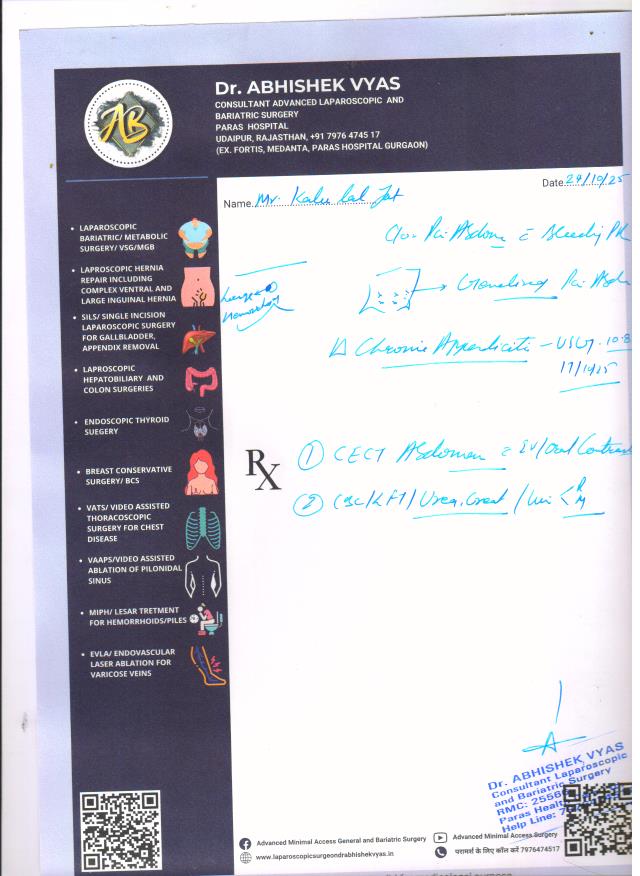 Dr. ABHISHEK VYAS
CONSULTANT ADVANCED LAPAROSCOPIC AND
BARIATRIC SURGERY
PARAS HOSPITAL
UDAIPUR, RAJASTHAN, +91 7976 4745 17
(EX. FORTIS, MEDANTA, PARAS HOSPITAL GURGAON)
AB
Date 24/10/25
Name Mr. Kalu Lal Jat
C/o Pain Abdomen c Bleeding PR
→ Generalised Pain Abdo
Hemorrhoid
Δ Chronic Appendicitis - USG. 10.8
17/10/25
Rx
① CECT Abdomen c IV/Oral Contrast
② CBC/LFT/Urea, Creat / Urine < R M
• LAPAROSCOPIC
BARIATRIC/ METABOLIC
SURGERY/ VSG/MGB
• LAPROSCOPIC HERNIA
REPAIR INCLUDING
COMPLEX VENTRAL AND
LARGE INGUINAL HERNIA
• SILS/ SINGLE INCISION
LAPAROSCOPIC SURGERY
FOR GALLBLADDER,
APPENDIX REMOVAL
• LAPROSCOPIC
HEPATOBILIARY AND
COLON SURGERIES
• ENDOSCOPIC THYROID
SUEGERY
• BREAST CONSERVATIVE
SURGERY/ BCS
• VATS/ VIDEO ASSISTED
THORACOSCOPIC
SURGERY FOR CHEST
DISEASE
• VAAPS/VIDEO ASSISTED
ABLATION OF PILONIDAL
SINUS
• MIPH/ LESAR TRETMENT
FOR HEMORRHOIDS/PILES
• EVLA/ ENDOVASCULAR
LASER ABLATION FOR
VARICOSE VEINS
Dr. ABHISHEK VYAS
Consultant Laparoscopic
and Bariatric Surgery
RMC: 2556
Paras Heal
Help Line: 7
Advanced Minimal Access General and Bariatric Surgery
Advanced Minimal Access Surgery
www.laparoscopicsurgeondrabhishekvyas.in
परामर्श के लिए कॉल करें 7976474517